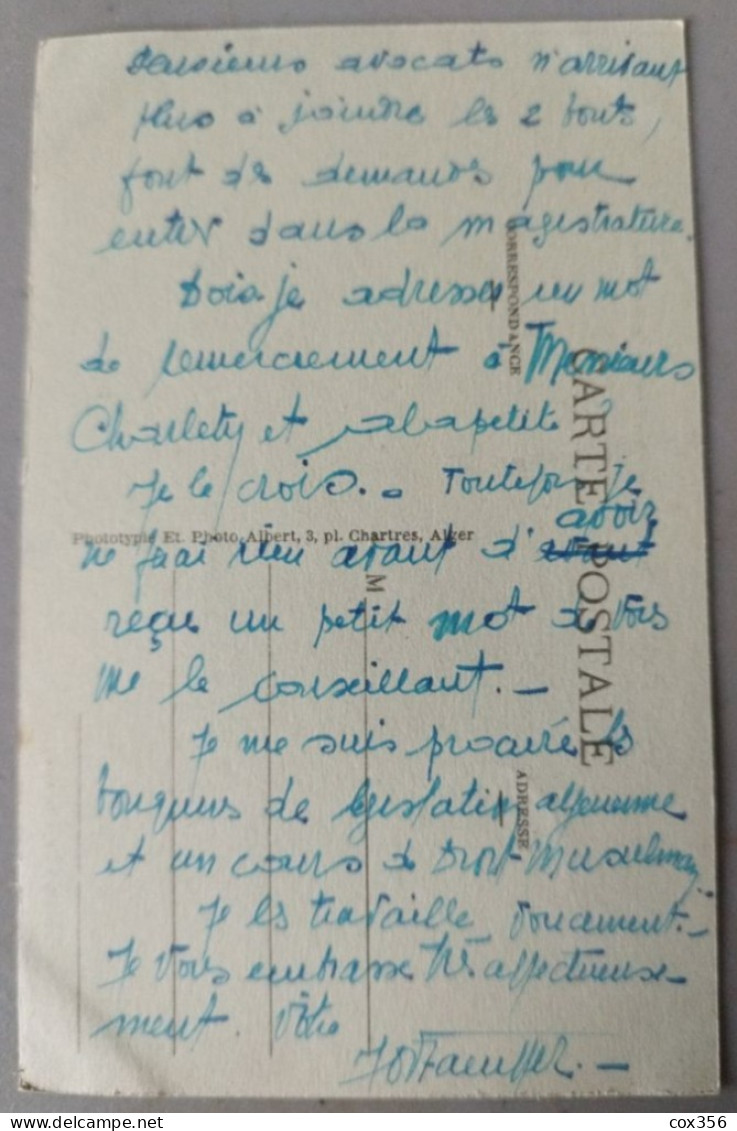 avocats n'arrivant
plus à joindre les 2 bouts,
font des demandes pour
entrer dans la magistrature.
Dois je adresser un mot
de remerciement à Messieurs
Charlety et
Je le crois. - Toutefois je
avoir
ne ferai rien avant d'
reçu un petit mot de vous
me le conseillant. -
Je me suis procuré les
bouquins de législation algérienne
et un cours de Droit Musulman.
Je les travaille doucement. -
Je vous embrasse très affectueuse-
ment. Votre
CORRESPONDANCE
CARTE POSTALE
ADRESSE
Phototypie Et. Photo Albert, 3, pl. Chartres, Alger
M
cox356